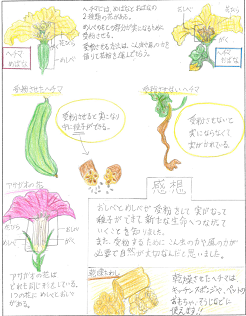 ヘチマには、めばなとおばなの
2種類の花がある。
めしべのもとの部分が実になるために
受粉させる。
受粉する方法は、こん虫や風の力を
借りて花粉を運んでもらう。
花びら
めしべ
ヘチマ
めばな
おしべ
花びら
がく
ヘチマ
おばな
受粉させたヘチマ
受粉させると実になり
中に種子ができる。
受粉させないヘチマ
受粉させないと
実にならなくて
実がかれている。
アサガオの花
花びら
めしべ
おしべ
がく
アサガオの花は
どれも同じ形をしている。
1つの花にめしべとおしべ
がある。
感想
おしべとめしべで受粉をして実がなって
種子ができて新たな生命へつながって
いくことを知りました。
また、受粉するためにこん虫の力や風の力が
必要で自然が大切なんだと思いました。
乾燥ヘちま
乾燥させたヘチマは、
キッチンスポンジや、ペットの
おもちゃ、そうじなどに
使えます!!